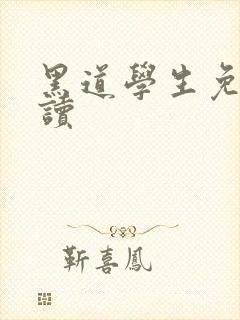 黑道學生免
讀
靳喜鳳